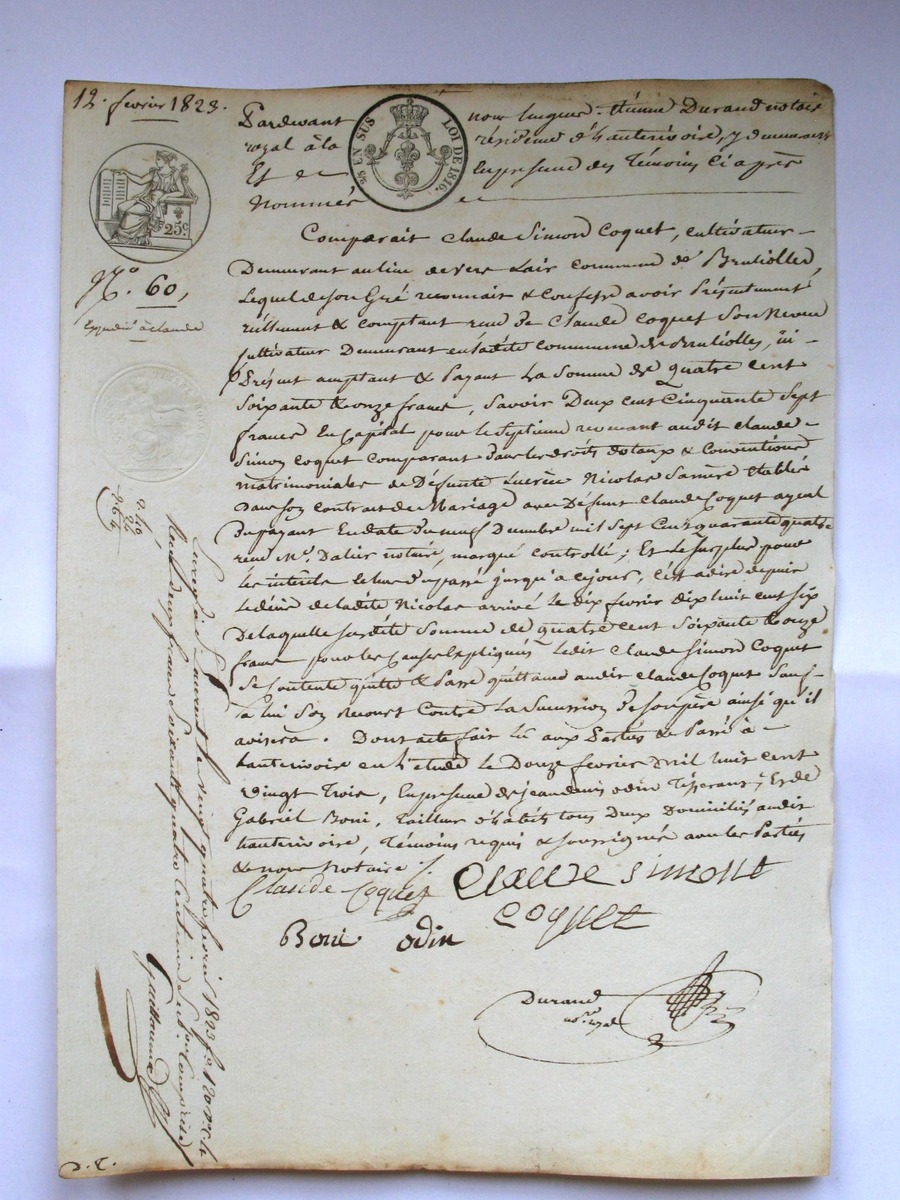 12. fevrier 1823.
Pardevant nous hugues Durand notaire
royal à la résidence d'hauterivoire, y demeurant
Et en la presence des Témoins Ci après
nommés
2/10 EN SUS LOI DE 1816.
25c.
N.o 60,
Expedié à claude
Comparait Claude Simon Coquet, cultivateur
Demeurant au lieu de vers Lair Commune de Brulliolles
Lequel de Son Gré reconnait & Confesse avoir Présentement
réellement & Comptant reçu de Claude Coquet Son Neveu
cultivateur Demeurant en ladite Commune de Brulliolles, ici
Présent acceptant & Payant La Somme de quatre Cent
Soixante & onze francs, Savoir Deux Cent Cinquante Sept
francs En Capital pour le Septieme revenant audit Claude
Simon Coquet Comparant Dans les droits dotaux & Conventions
matrimoniales de Défunte Nicolas Sa mère Etablis
Dans Son Contrat de Mariage avec Défunt Claude Coquet
En date Du neuf Decembre mil Sept Cent quarante quatre
reçu Me. notaire, Controllé; Et le Surplus pour
les interets jusqu'a Ce jour, C'est adire depuis
le décès de ladite Nicolas arrivé le dix fevrier dix huit Cent Six
De laquelle Susdite Somme de quatre Cent Soixante & onze
francs pour les Causes Expliquées Ledit Claude Simon Coquet
Se Contente quitte & Passe quittance audit Claude Coquet Sauf
à lui Son Recourt Contre La Succession De Son père ainsi qu'il
avisera. Dont acte fait lu aux Parties & Passé à
hauterivoire en l'etude Le Douze fevrier Mil huit Cent
Vingt Trois, En presence de jean odin Tisserant, Et de
Gabriel Boni, Tailleur d'habits tous Deux Domiciliés audit
hauterivoire, Témoins requis & Soussignés avec les Parties
& nous Notaire
Claude Coquet Claude Simont
Coquet
Boni odin
Durand
no.re royal
2,20
22
2,64
à St. Laurent le vingt quatre fevrier 1823 fo. 120
Reçu deux francs Soixante quatre Centimes Sub.on Comprise
D. C.